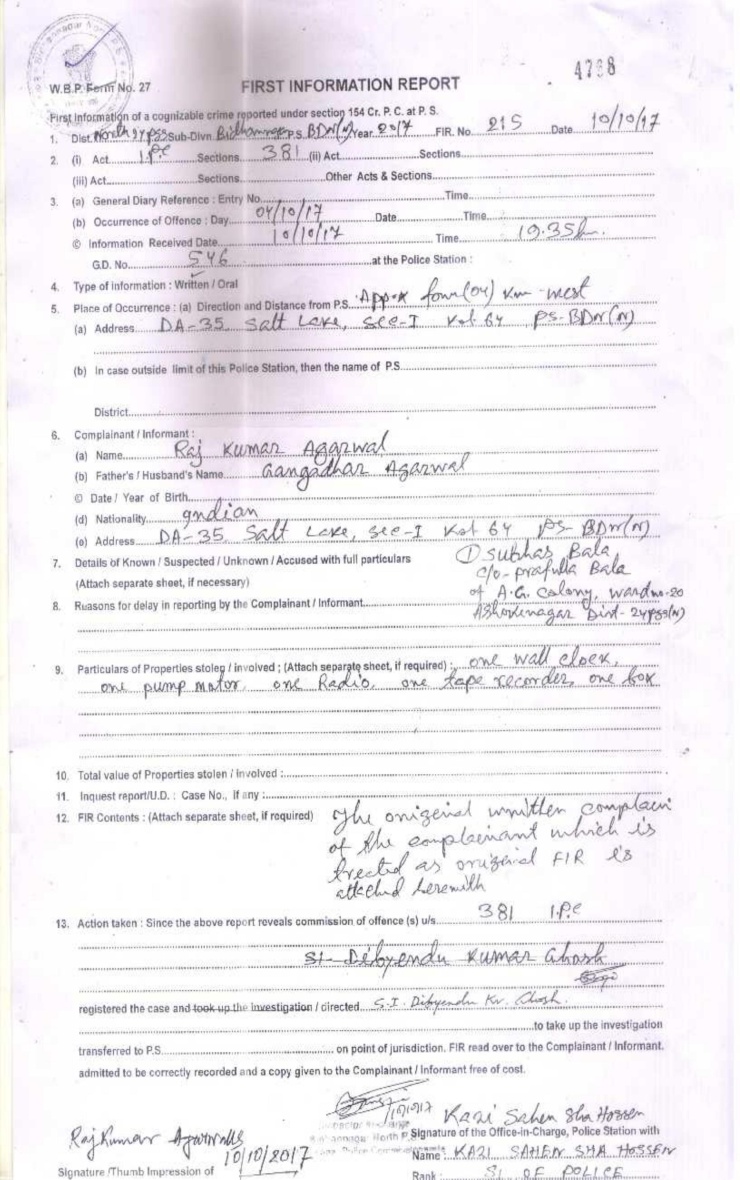 4788
W.B.P. Form No. 27
FIRST INFORMATION REPORT
First Information of a cognizable crime reported under section 154 Cr. P. C. at P. S.
1. Dist. North 24 pgs Sub-Divn. Bidhannagar P.S. BDN(N) Year 2017 FIR. No. 215 Date 10/10/17
2. (i) Act I.P.C Sections 381 (ii) Act Sections
(iii) Act Sections Other Acts & Sections
3. (a) General Diary Reference : Entry No. Time
(b) Occurrence of Offence : Day 04/10/17 Date Time
© Information Received Date 10/10/17 Time 19.35 hr.
G.D. No. 546 at the Police Station :
4. Type of information : Written / Oral
5. Place of Occurrence : (a) Direction and Distance from P.S. Appox four (04) km - west
(a) Address DA-35, Salt Lake, sec-I Kol 64 PS-BDN(N)
(b) In case outside limit of this Police Station, then the name of P.S.
District
6. Complainant / Informant :
(a) Name Raj Kumar Agarwal
(b) Father's / Husband's Name Gangadhar Agarwal
© Date / Year of Birth
(d) Nationality Indian
(e) Address DA-35, Salt Lake, sec-I Kol 64 PS-BDN(N)
7. Details of Known / Suspected / Unknown / Accused with full particulars
(Attach separate sheet, if necessary)
① Subhas Bala
C/o- prafulla Bala
of A.G. Colony, ward no-20
Ashokenagar Dist- 24pgs(N)
8. Reasons for delay in reporting by the Complainant / Informant
9. Particulars of Properties stolen / involved ; (Attach separate sheet, if required) : one wall clock,
one pump motor, one Radio, one tape recorder, one box
10. Total value of Properties stolen / involved :
11. Inquest report/U.D. : Case No., if any :
12. FIR Contents : (Attach separate sheet, if required) The original written complain
of the complainant which is
treated as original FIR is
attached herewith
13. Action taken : Since the above report reveals commission of offence (s) u/s 381 I.P.C
SI- Dibyendu Kumar Ghosh
registered the case and took up the investigation / directed S.I. Dibyendu Kr. Ghosh.
to take up the investigation
transferred to P.S. on point of jurisdiction. FIR read over to the Complainant / Informant.
admitted to be correctly recorded and a copy given to the Complainant / Informant free of cost.
10/10/17
Kazi Sahen Sha Hossen
Signature of the Office-in-Charge, Police Station with
RajKumar Agarwal
10/10/2017
Name : KAZI SAHEN SHA HOSSEN
Signature /Thumb Impression of
Rank : SI OF POLICE